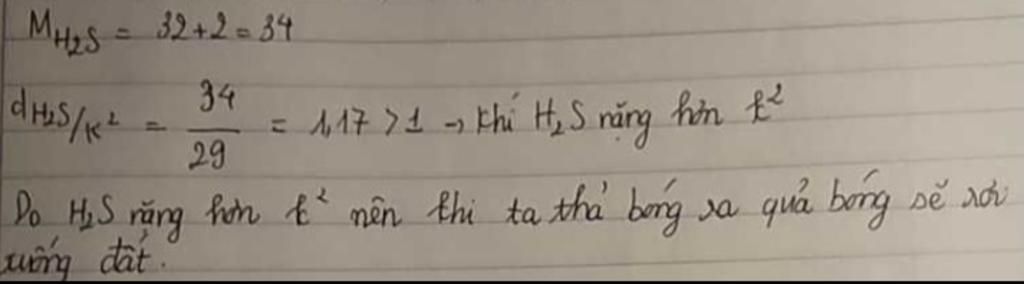 M_H₂S = 32+2 = 34
d_H₂S/K² = 34/29 = 1,17 > 1 → Khí H₂S nặng hơn k²
Do H₂S nặng hơn k² nên khi ta thả bóng ra quả bóng sẽ rơi
xuống đất.